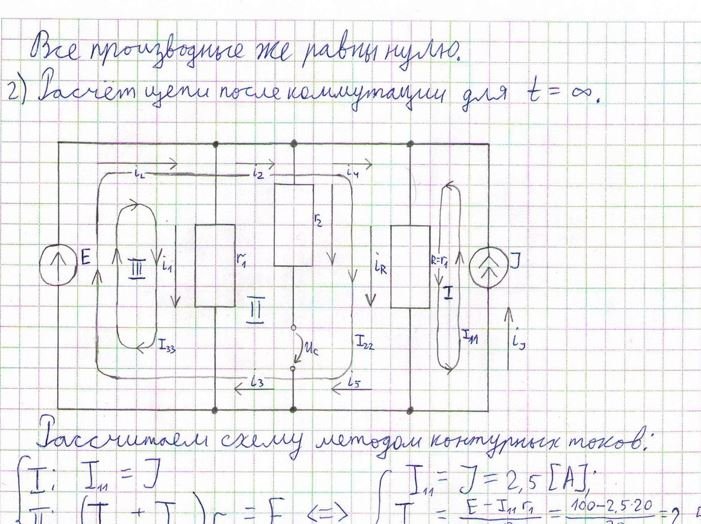 Все производные же равны нулю.
2) Расчёт цепи после коммутации для t = ∞.
iL i2 i4
E III i1 r1 II r2 iR R=r1 I J
I33 uC I22 I11 iJ
i3 i5
Рассчитаем схему методом контурных токов:
I: I11 = J
I11 = J = 2,5 [A];
E - I11 r1 = 100-2,5·20
= E <=>